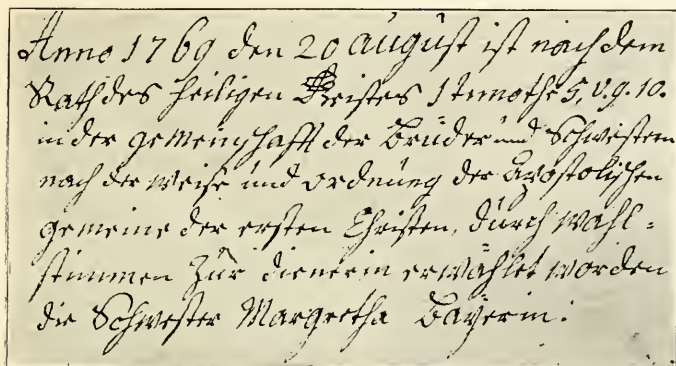 Anno 1769 den 20 August ist nach dem
Rath des Heiligen Geistes 1 Timothe 5, v. 9. 10.
in der gemeinschafft der Brüder und Schwestern
nach der weise und ordnung der Apostolischen
gemeine der ersten Christen, durch wahl=
stimmen Zur dienerin erwählet worden
die Schwester Margretha Bayerin.